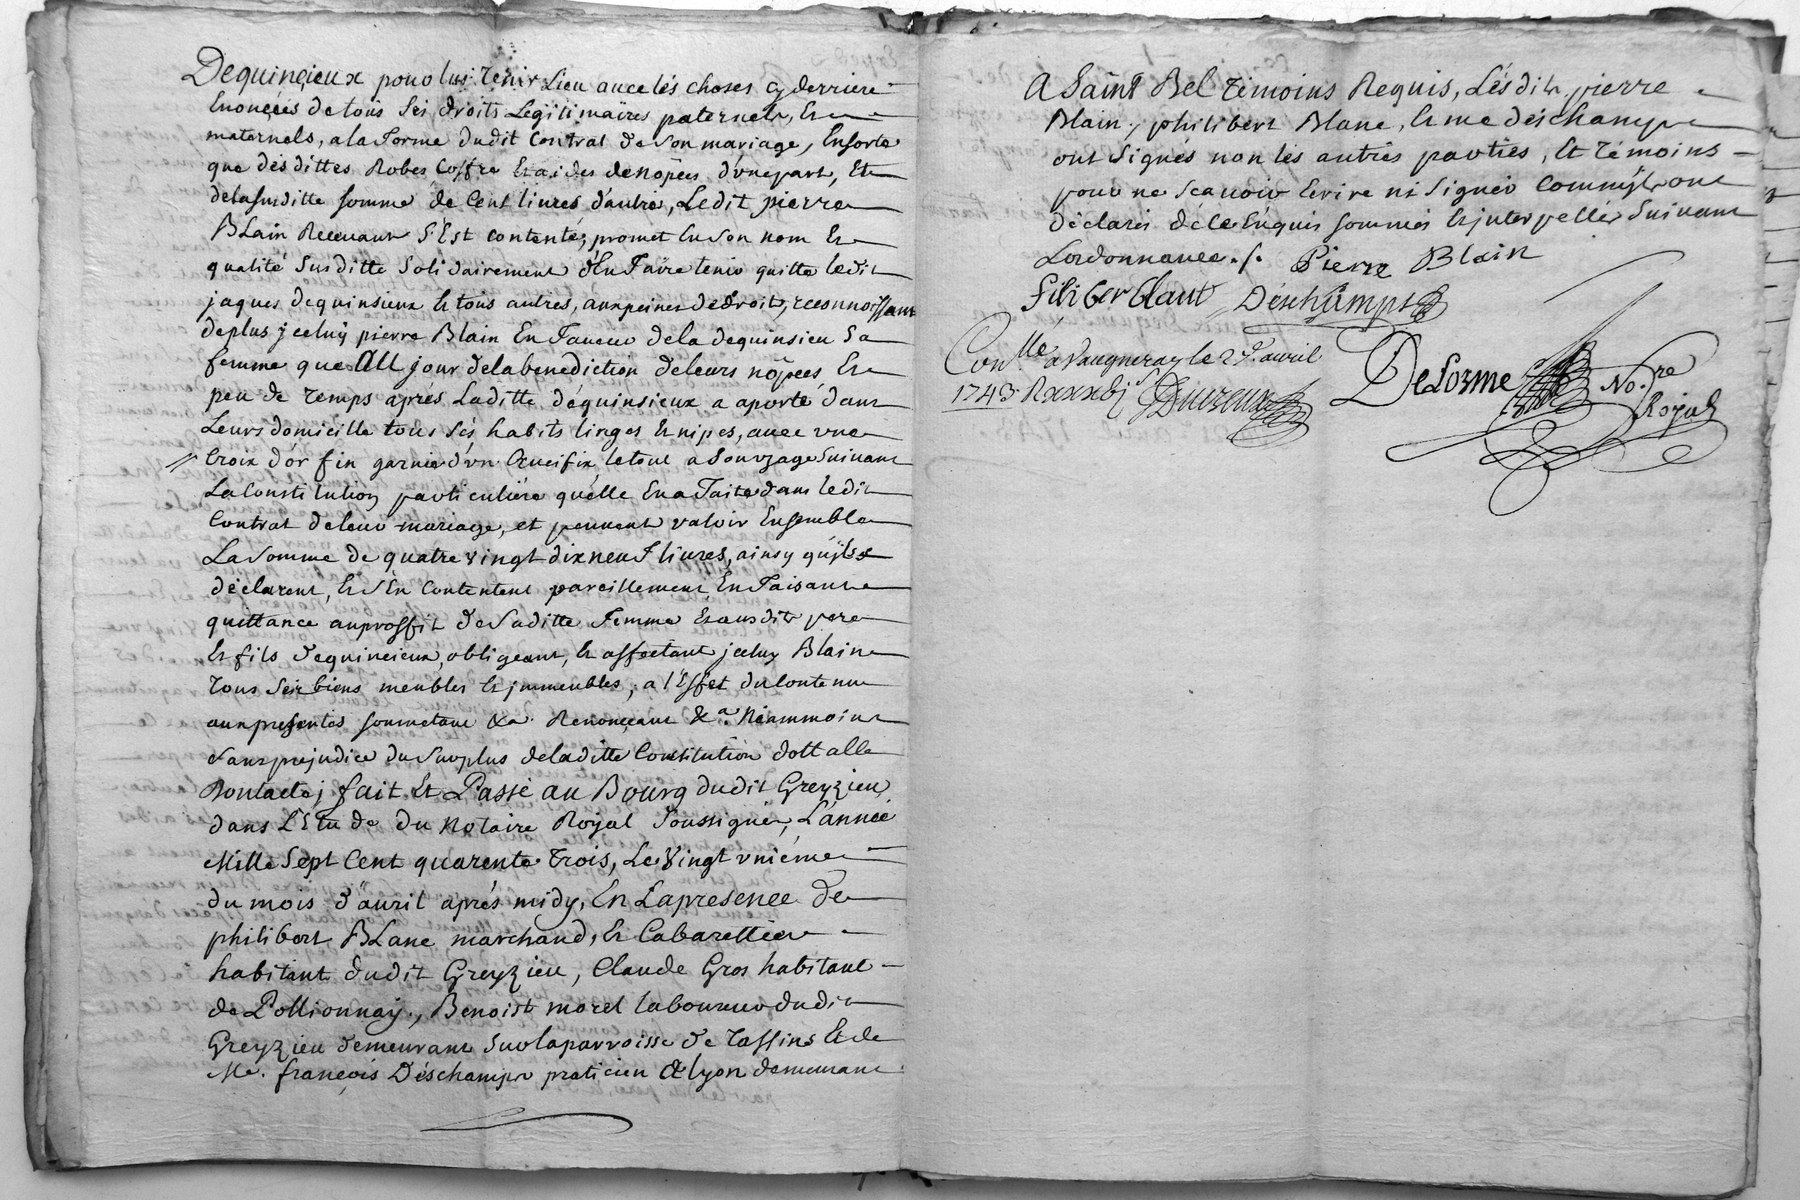 Dequinçieux pour lui tenir Lieu avec lés choses cy derriere
Enonçéés de tous sés droits Légitimaires paternels, Et
maternels, a la forme dudit Contrat de son mariage, Ensorte
que désdittes Robes Coffre Et aides de nôpces d'une part, Et
de la susditte somme de Cent livres d'autre, Ledit pierre
BLain Recevant S'Est contenté, promet En son nom Et
qualité susditte Solidairement d'En faire tenir quitte ledit
jaques dequinsieux Et tous autres, aux peines de droit, reconnoissant
de plus jceluy pierre Blain En faveur de la dequinsieu Sa
femme que au jour de la benediction de leurs nôpces Et
peu de temps aprés Laditte déquinsieux a aporté dans
Leurs domicille tous sés habits linges Et nipes, avec une
Croix d'or fin garnie d'un Crucifix le tout a Son usage suivant
La Constitution particuliére qu'elle En a faite dans ledit
Contrat de leur mariage, et peuvent valoir Ensemble
La somme de quatre vingt dix neuf livres, ainsy qu'ils
déclarent, Et s'En Contentent pareillement En faisant
quittance au proffit de Saditte femme Et ausdits pere
Et fils dequincieux, obligeant, Et affectant jceluy Blain
tous Ses biens meubles Et jmmeubles, a l'Effet du Contenu
aux présentes soumetant &a. Renonçant &a. Néammoins
sans prejudice du surplus de laditte Constitution dottalle
fait Et Passé au Bourg dudit Greyzieu,
dans L'Etude du Notaire Royal Soussigné, L'année
Mille Sept Cent quarente trois, Le Vingt unième
du mois d'avril aprés midy, En La presence de
philibert BLanc marchand, Et Cabarettier
habitant dudit Greyzieu, Claude Gros habitant
de Pollionnay, Benoist morel laboureur dudit
Greyzieu demeurant sur la parroisse de Tassins Et de
Me. françois Déschamps praticien de lyon demeurant
A Saint Bel témoins Requis, Lésdits pierre
Blain, philibert Blanc, Et me déschamps
ont Signés non lés autrés partiés, Et témoins
pour ne Scavoir Ecrire ni Signér Comm'ils ont
déclarés de ce Enquis sommés Et jnterpellés Suivant
L'ordonnance ./. Pierre Blain
filiber blanc Déschamps
Conllé a Vaugneray le 27e. avril
1743 R
Delorme No.re
Royal